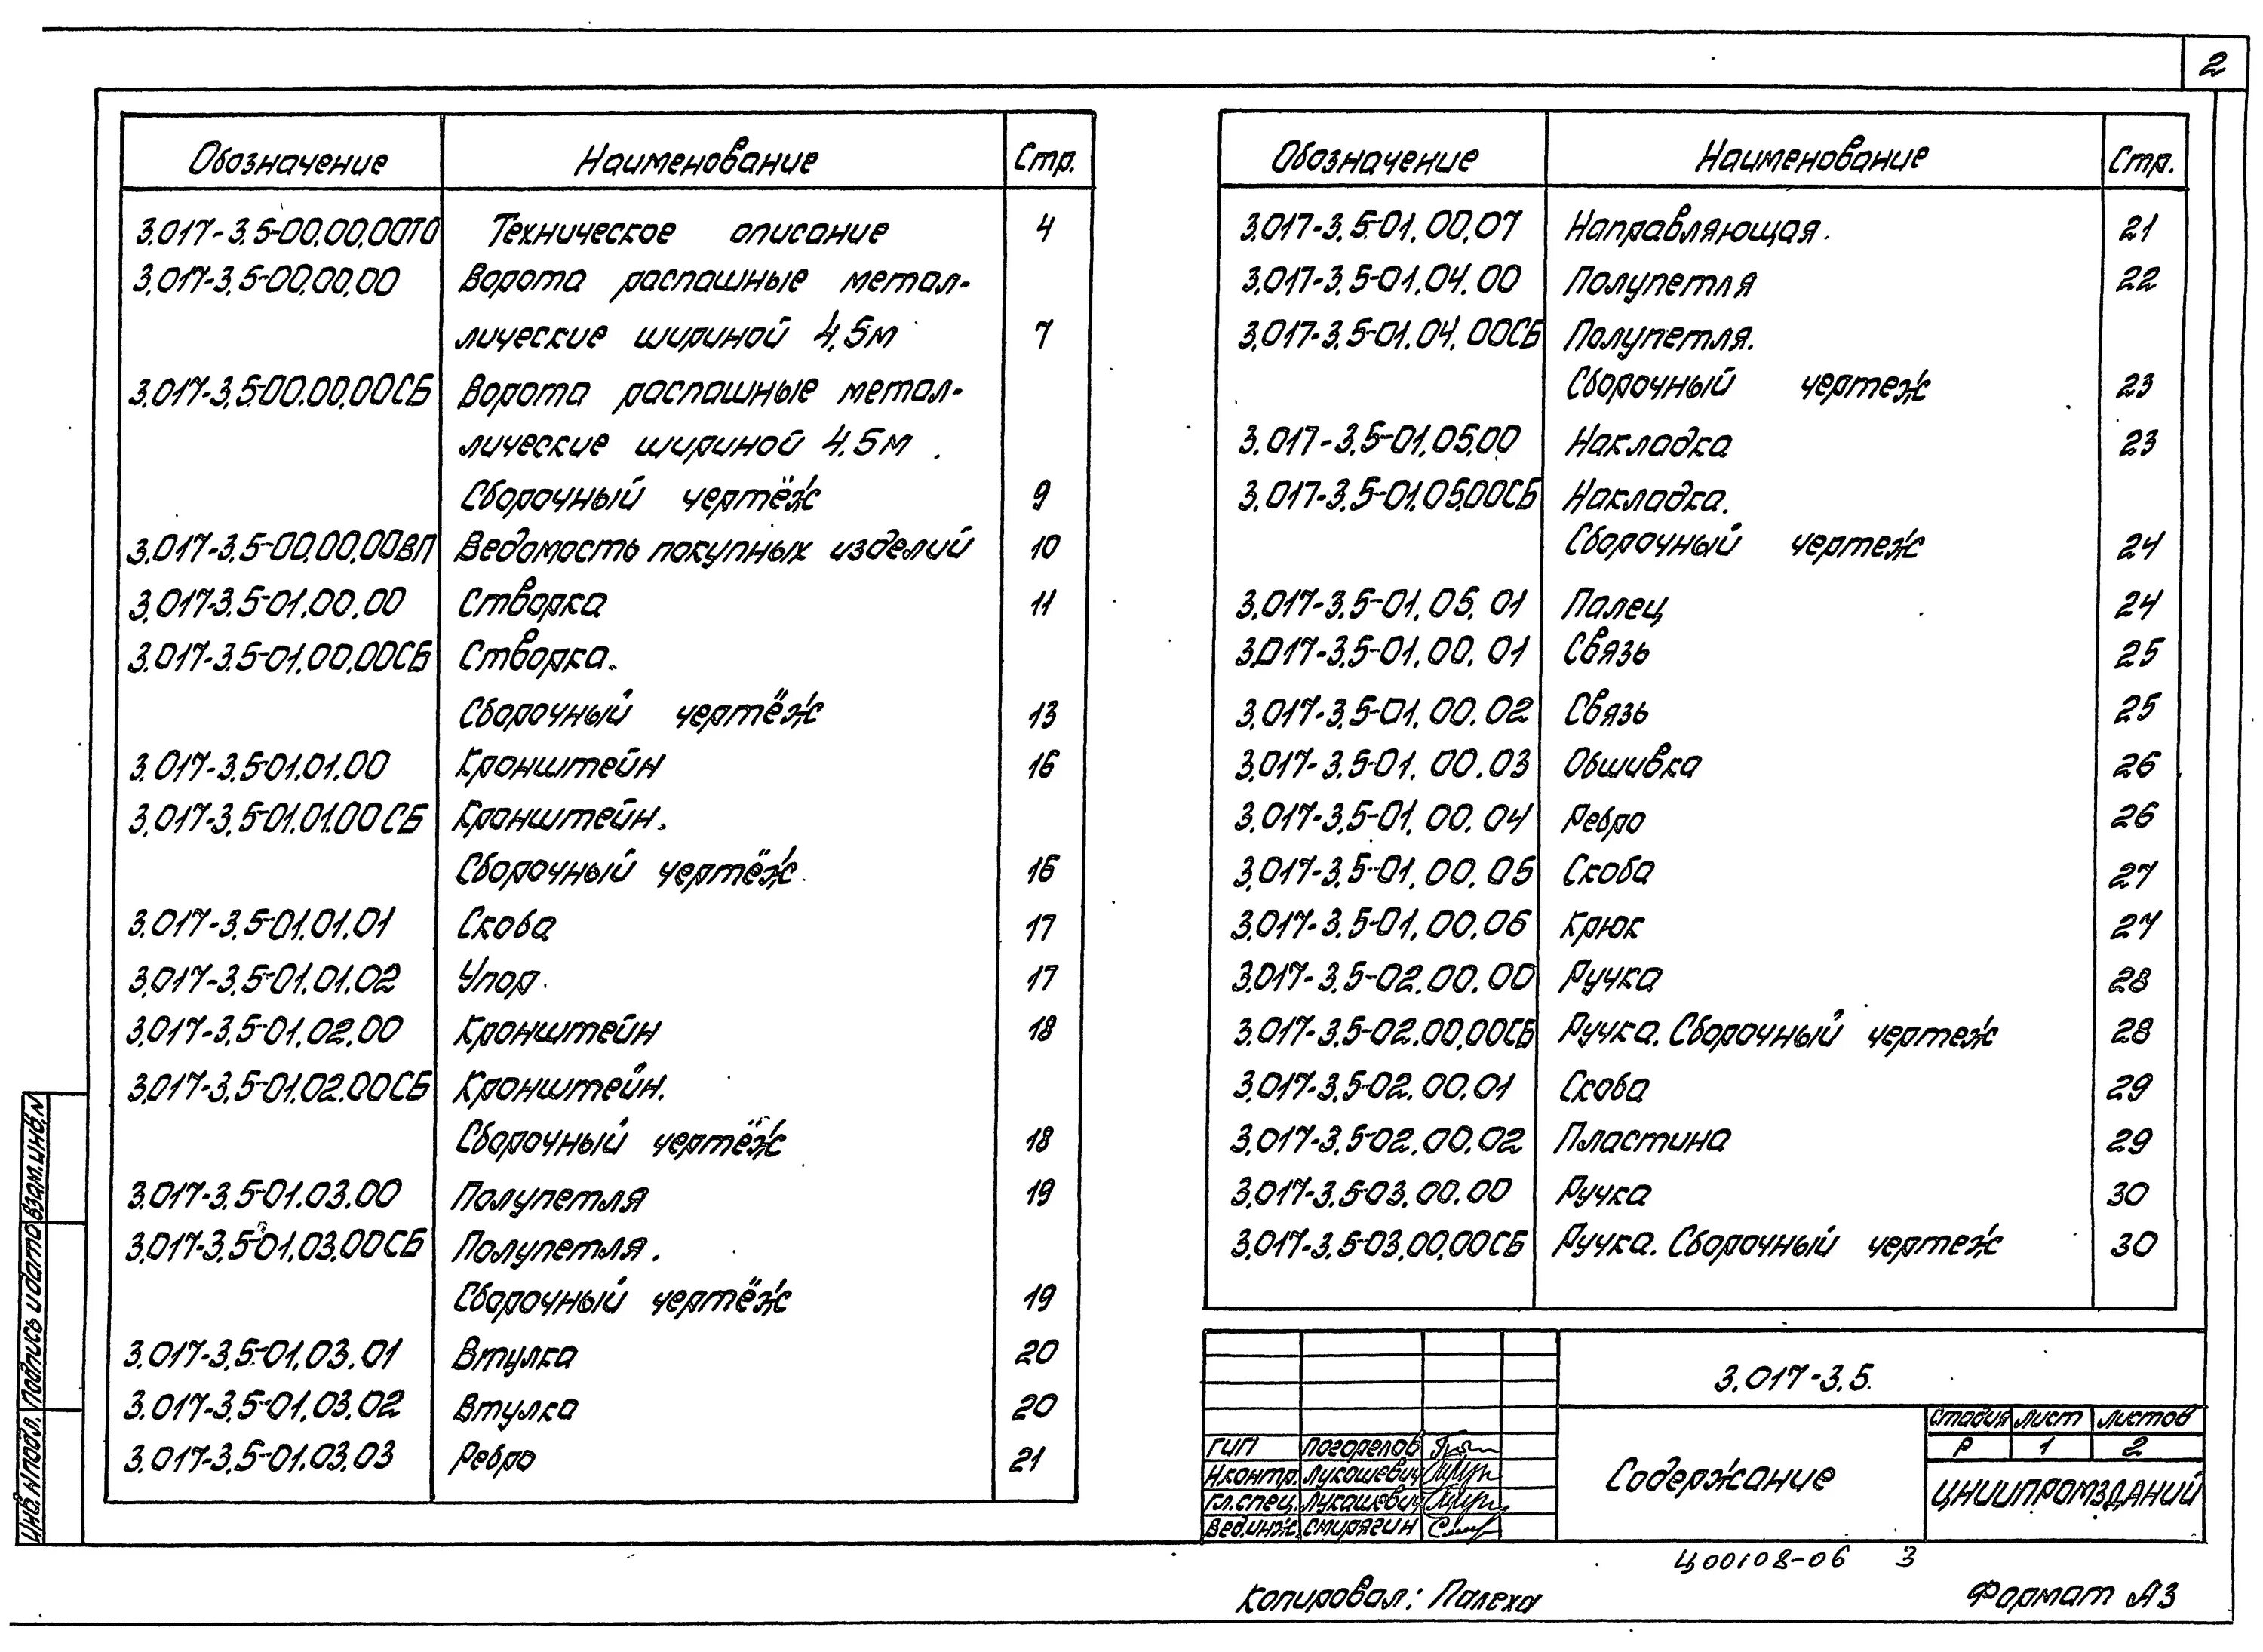 2
Обозначение Наименование Стр.
3.017-3.5-00.00.00ТО Техническое описание 4
3.017-3.5-00.00.00 Ворота распашные метал-
лические шириной 4,5м 7
3.017-3.5-00.00.00СБ Ворота распашные метал-
лические шириной 4.5м.
Сборочный чертёж 9
3.017-3.5-00.00.00ВП Ведомость покупных изделий 10
3.017-3.5-01.00.00 Створка 11
3.017-3.5-01.00.00СБ Створка.
Сборочный чертёж 13
3.017-3.5-01.01.00 Кронштейн 16
3.017-3.5-01.01.00СБ Кронштейн.
Сборочный чертёж. 16
3.017-3.5-01.01.01 Скоба 17
3.017-3.5-01.01.02 Упор. 17
3.017-3.5-01.02.00 Кронштейн 18
3.017-3.5-01.02.00СБ Кронштейн.
Сборочный чертёж 18
3.017-3.5-01.03.00 Полупетля 19
3.017-3.5-01.03.00СБ Полупетля.
Сборочный чертёж 19
3.017-3.5-01.03.01 Втулка 20
3.017-3.5-01.03.02 Втулка 20
3.017-3.5-01.03.03 Ребро 21
Обозначение Наименование Стр.
3.017-3.5-01.00.07 Направляющая. 21
3.017-3.5-01.04.00 Полупетля 22
3.017-3.5-01.04.00СБ Полупетля.
Сборочный чертеж 23
3.017-3.5-01.05.00 Накладка 23
3.017-3.5-01.05.00СБ Накладка.
Сборочный чертеж 24
3.017-3.5-01.05.01 Палец 24
3.017-3.5-01.00.01 Связь 25
3.017-3.5-01.00.02 Связь 25
3.017-3.5-01.00.03 Обшивка 26
3.017-3.5-01.00.04 Ребро 26
3.017-3.5-01.00.05 Скоба 27
3.017-3.5-01.00.06 Крюк 27
3.017-3.5-02.00.00 Ручка 28
3.017-3.5-02.00.00СБ Ручка. Сборочный чертеж 28
3.017-3.5-02.00.01 Скоба 29
3.017-3.5-02.00.02 Пластина 29
3.017-3.5-03.00.00 Ручка 30
3.017-3.5-03.00.00СБ Ручка. Сборочный чертеж 30
Инв. № подл. Подпись и дата Взам. инв. №
3.017-3.5.
Содержание
Стадия Лист Листов
Р 1 2
ЦНИИПРОМЗДАНИЙ
ГИП Погорелов
Н.контр. Лукашевич
Гл.спец. Лукашевич
Вед.инж. Смирягин
Ц00108-06 3
Копировал: Палеха
Формат А3